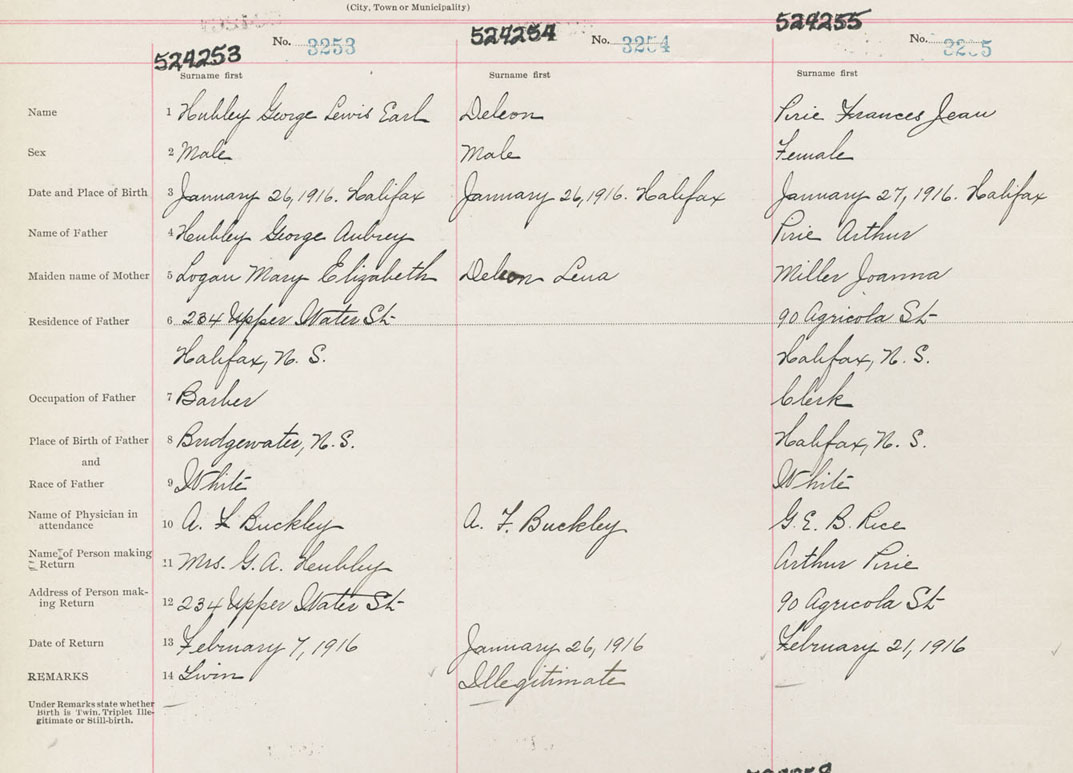 (City, Town or Municipality)
524253 No. 3253 524254 No. 3254 524255 No. 3255
Surname first Surname first Surname first
Name 1 Hubley George Lewis Earl Deleon Pirie Frances Jean
Sex 2 Male Male Female
Date and Place of Birth 3 January 26, 1916. Halifax January 26, 1916. Halifax January 27, 1916. Halifax
Name of Father 4 Hubley George Aubrey Pirie Arthur
Maiden name of Mother 5 Logan Mary Elizabeth Deleon Lena Miller Joanna
Residence of Father 6 234 Upper Water St 90 Agricola St
Halifax, N. S. Halifax, N. S.
Occupation of Father 7 Barber Clerk
Place of Birth of Father 8 Bridgewater, N. S. Halifax, N. S.
and
Race of Father 9 White White
Name of Physician in
attendance 10 A. F Buckley A. F. Buckley G. E. B. Rice
Name of Person making
Return 11 Mrs. G. A. Heubley Arthur Pirie
Address of Person mak-
ing Return 12 234 Upper Water St 90 Agricola St
Date of Return 13 February 7, 1916 January 26, 1916 February 21, 1916
REMARKS 14 Twin Illegitimate —
Under Remarks state whether —
Birth is Twin, Triplet Ille-
gitimate or Still-birth.